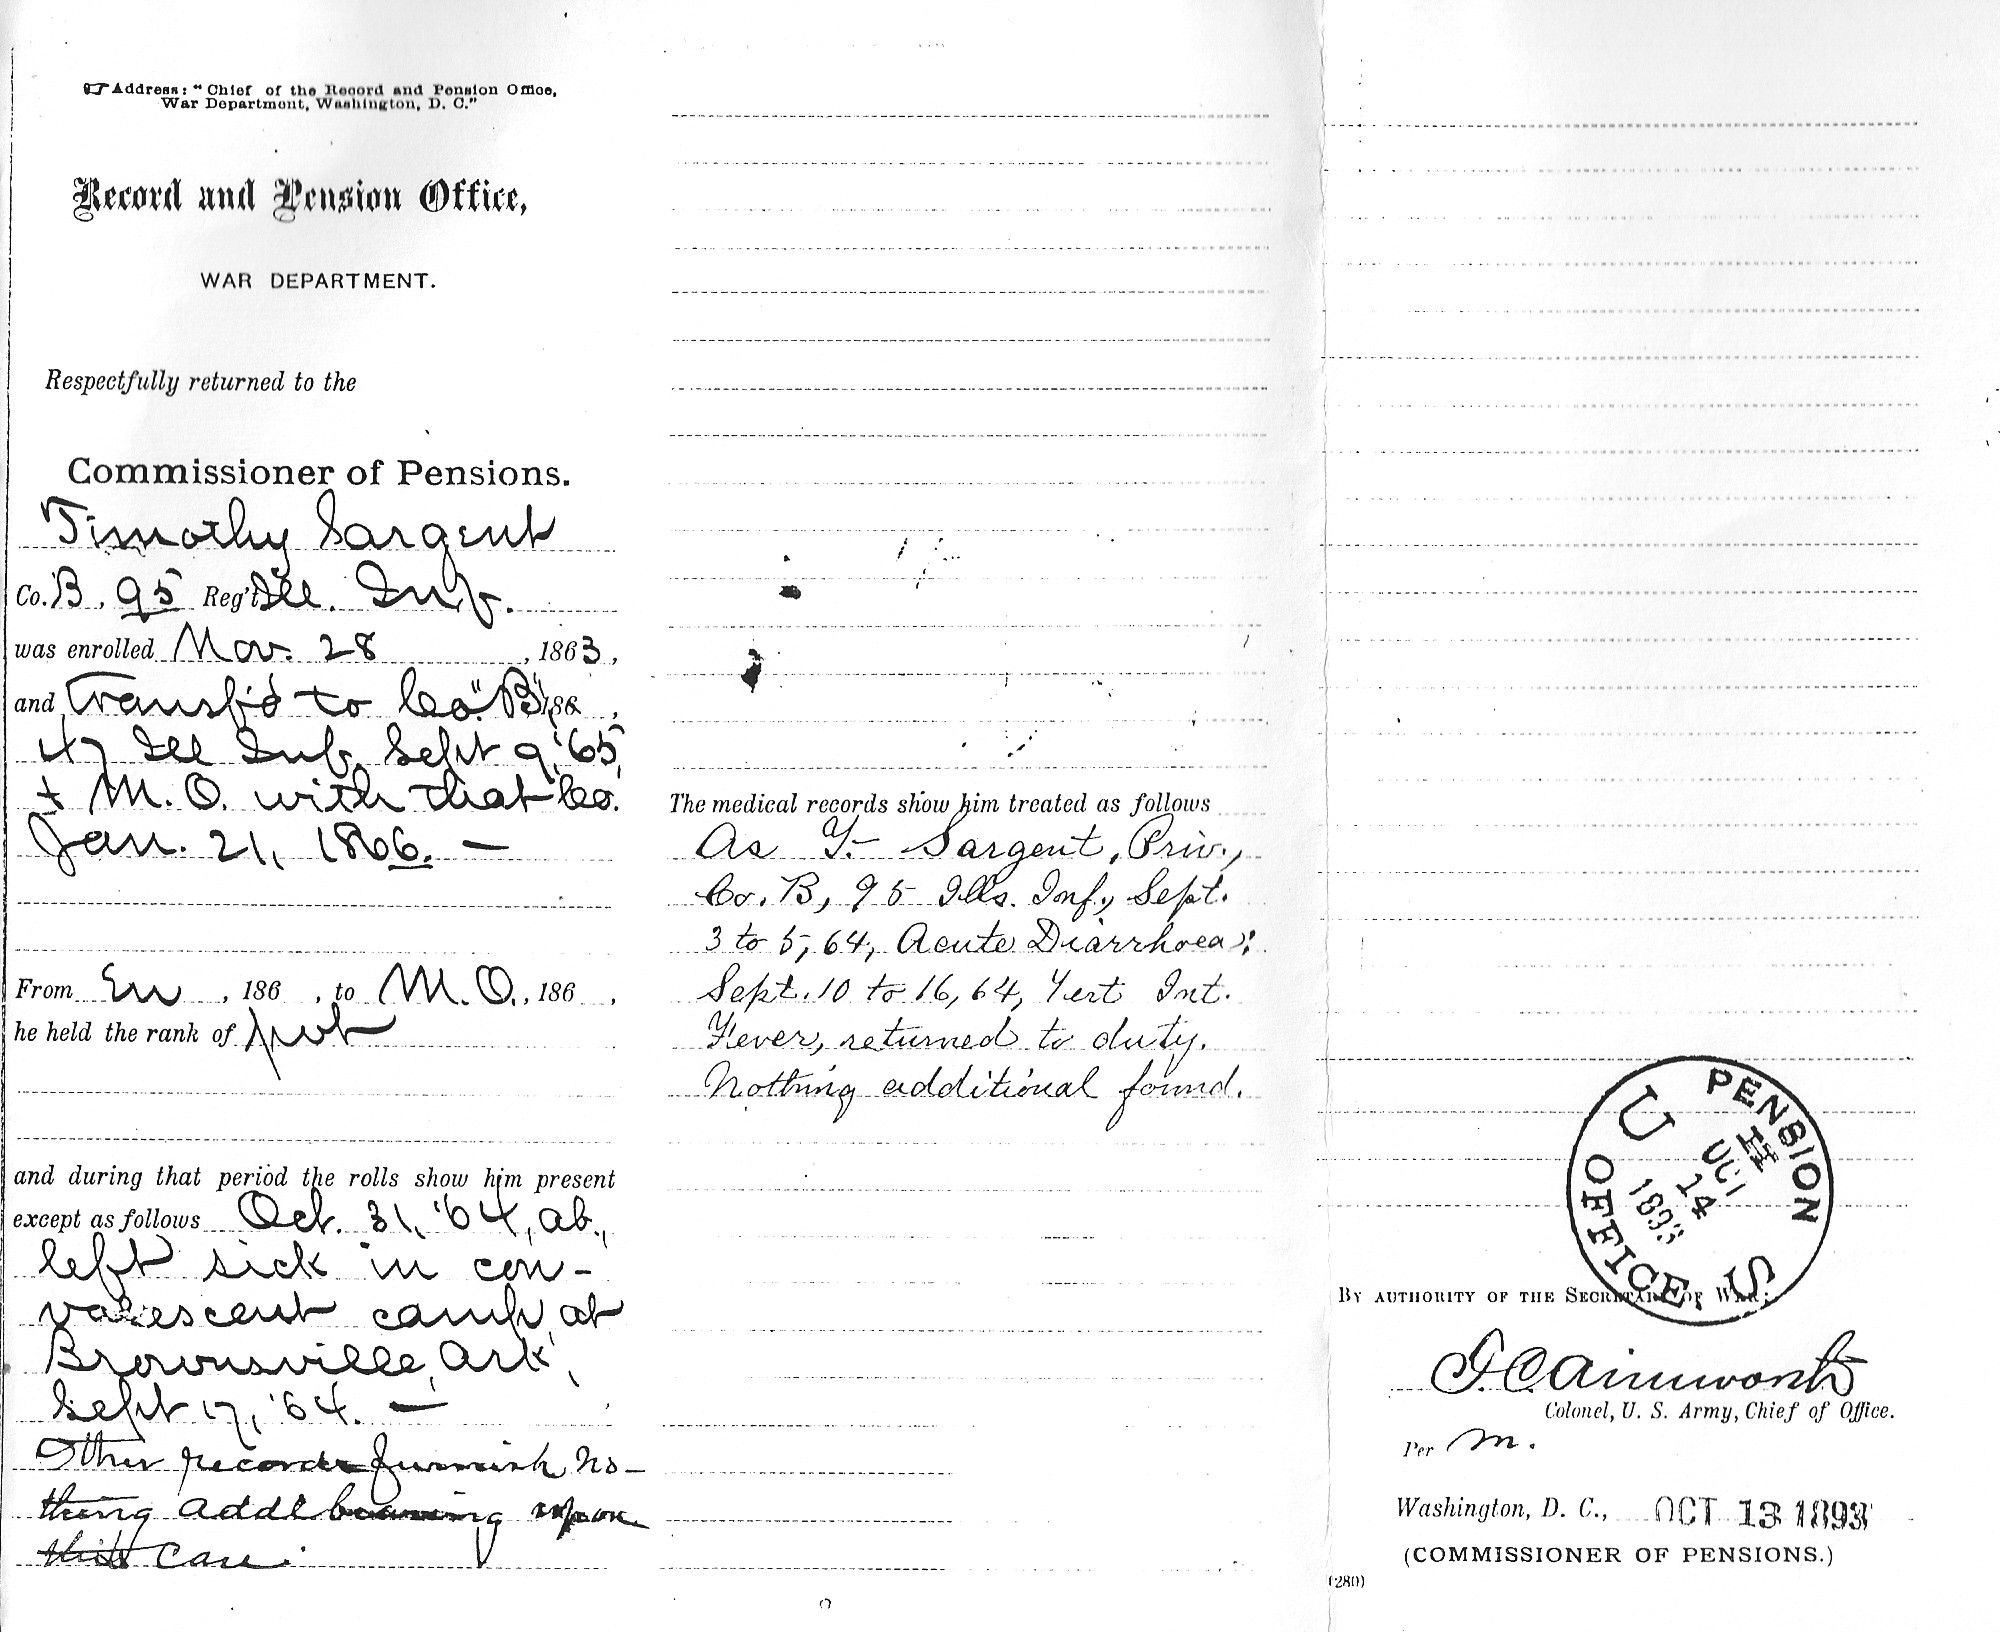 ☞ Address: "Chief of the Record and Pension Office,
War Department, Washington, D. C."
Record and Pension Office,
WAR DEPARTMENT.
Respectfully returned to the
Commissioner of Pensions.
Timothy Sargent
Co. B, 95 Reg't Ill. Inf.
was enrolled Nov. 28, 1863,
and transf'd to Co. "B", 186 ,
47 Ill Inf Sept 9, '65,
+ M. O. with that Co.
Jan. 21, 1866. —
From En , 186 , to M. O., 186 ,
he held the rank of pvt
and during that period the rolls show him present
except as follows Oct. 31, '64, ab.,
left sick in con-
valescent camp, at
Brownsville, Ark,
Sept 17, '64. —
Other records furnish no-
thing addl bearing upon
this case.
The medical records show him treated as follows
As T. Sargent, Priv.,
Co. B, 95 Ills. Inf., Sept.
3 to 5, 64, Acute Diarrhoea;
Sept. 10 to 16, 64, Tert Int.
Fever, returned to duty.
Nothing additional found.
U S PENSION OFFICE.
OCT
14
1893
BY AUTHORITY OF THE SECRETARY OF WAR:
F. C. Ainsworth
Colonel, U. S. Army, Chief of Office.
Per M.
Washington, D. C., OCT 13 1893
(COMMISSIONER OF PENSIONS.)
(280)